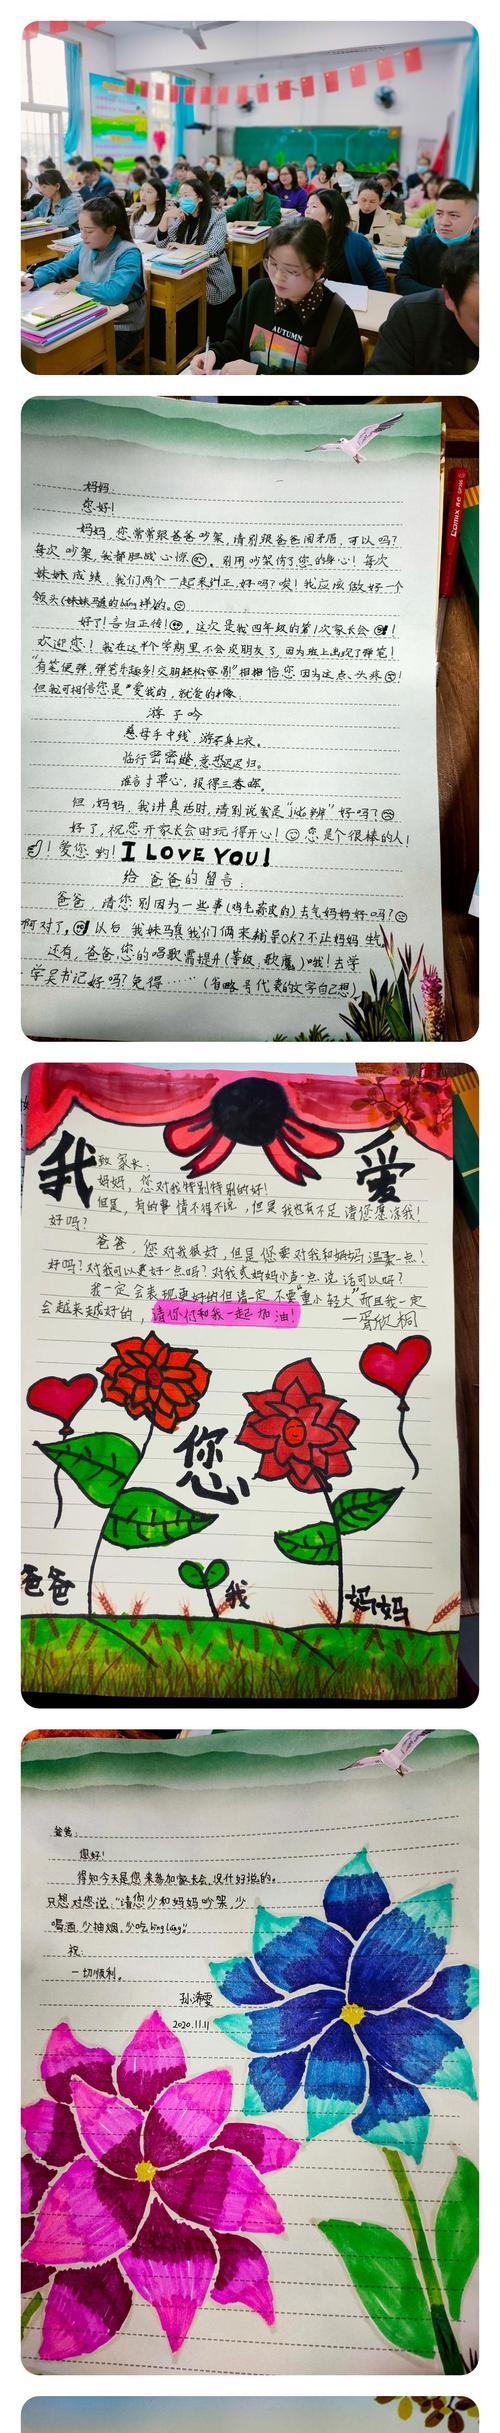 AUTUMN
妈妈:
您好!
妈妈,您常常跟爸爸吵架,请别跟爸爸闹矛盾,可以吗?
每次吵架,我都胆战心惊,别用吵架伤了您的身心!每次
妹妹成绩,我们两个一起来纠正,好吗?唉!我应该做好一个
领头(妹妹的bǎng样)的。
好了!言归正传!这次是我四年级的第1次家长会!
欢迎您!我在这半个学期里不会交朋友了,因为班上出现了弹笔!
但我可相信您是爱我的,就爱的像:
游子吟
慈母手中线,游子身上衣。
临行密密缝,意恐迟迟归。
谁言寸草心,报得三春晖。
但,妈妈,我讲真话时,请别说我是"jiǎo辨"好吗?
好了,祝您开家长会时玩得开心!您是个很棒的人!
爱您哟!I LOVE YOU!
给爸爸的留言:
爸爸,请您别因为一些事(鸡毛蒜皮的)去气妈妈好吗?
啊对了,以后我妹马真我们俩来辅导OK?不让妈妈生气
还有,爸爸,您的唱歌需提升(等级:歌魔)哦!去学
学吴书记好吗?免得……(省略号代表的文字自己想)
Comix
我 爱
致家长:
妈妈,您对我特别特别的好!
但是,有的事情不得不说,但是我也有不足请您原谅我!
好吗?
爸爸,您对我很好,但是您要对我和妈妈温柔一点!
好吗?对我可以更好一点吗?对我或妈妈小声一点说话可以吗?
我一定会表现更好的但请一定不要"重小轻大"而且我一定
会越来越好的,请你们和我一起加油!
您
爸爸 我 妈妈
爸爸:
您好!
得知今天是您来参加家长会,没什好说的。
只想对您说:"请您少和妈妈吵架,少
喝酒,少抽烟,少吃bīng láng。"
祝:
一切顺利。
2020.11.11